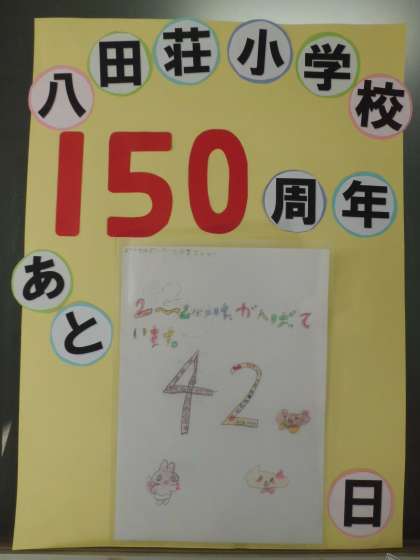 八田荘小学校
150周年
あと
がんばって
います。
42
日